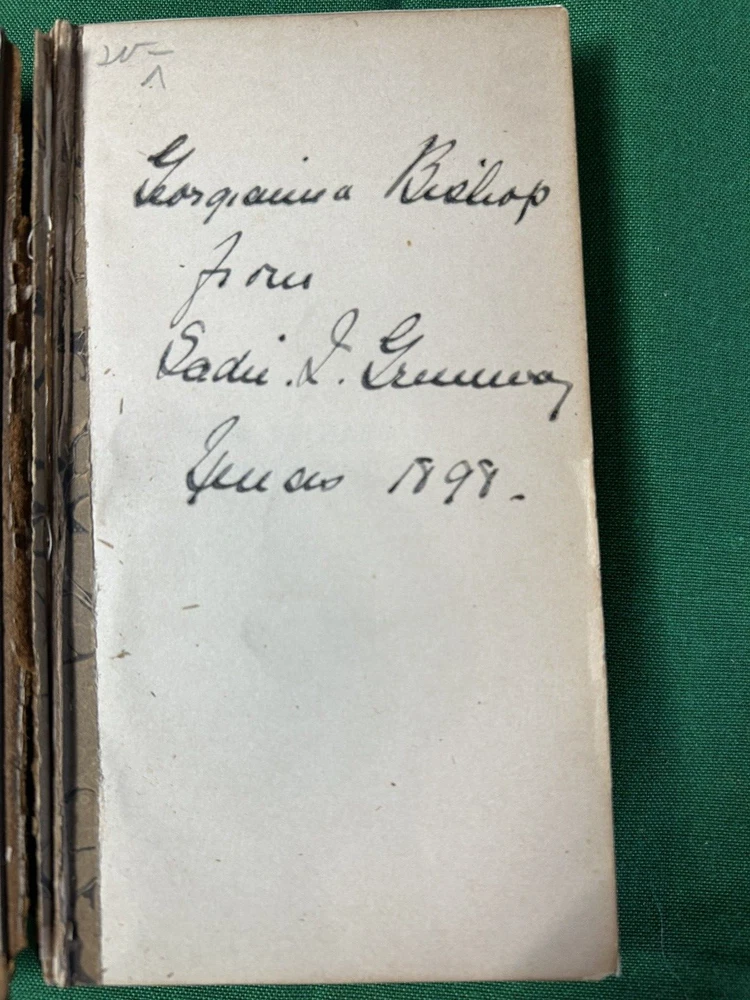 Georgianna Bishop
from
Sadie. I. Greenway
Xmas 1898.